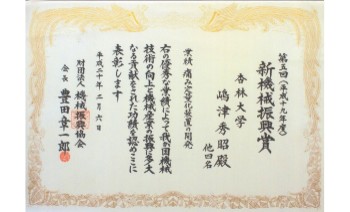 第五回(平成十九年度)
新機械振興賞
杏林大学
嶋津秀昭殿
他四名
業績 痛み定量化装置の開発
右の優秀な業績によって我が国機械
技術の向上と機械産業の振興に多大
なる貢献をされた功績を認めここに
表彰します
平成二十年二月六日
財団法人 機械振興協会
会長 豊田章一郎